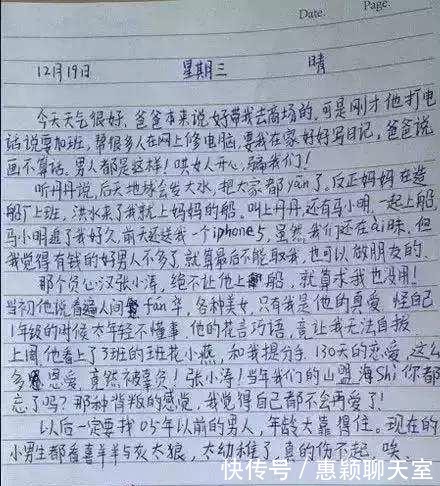 Date. Page.
12月19日 星期三 晴
今天天气很好,爸爸本来说好带我去商场的,可是刚才他打电
话说要加班,帮很多人在网上修电脑,要我在家好好写日记,爸爸说
画不算话,男人都是这样!哄女人开心,骗我们!
听丹丹说,后天地球会发大水,把大家都yān了。反正妈妈在造
船厂上班,洪水来了我就上妈妈的船。叫上丹丹,还有马小明,一起上船,
马小明追了我好久,前天还送我一个iphone5,虽然我们还在ai昧,但
我觉得有钱的好男人不多了,就算最后不能取我,也可以做朋友的。
那个负心汉张小涛,绝不让他上船,就算求我也没用!
当初他说看遍人间fán华,各种美女,只有我是他的真爱,怪自己
1年级的时候太年轻不懂事,他的花言巧语,竟让我无法自拔
上周他看上了3班的班花小燕,和我提分手,130天的恋爱,这么
多恩爱,竟然被辜负!张小涛!当年我们的山盟海Shi你都
忘了吗?那种背叛的感觉,我觉得自己都不会再爱了!
以后一定要找05年以前的男人,年龄大靠得住。现在的
小男生都看喜羊羊与灰太狼,太幼稚了,真的伤不起,唉。
快传号/惠颖聊天室